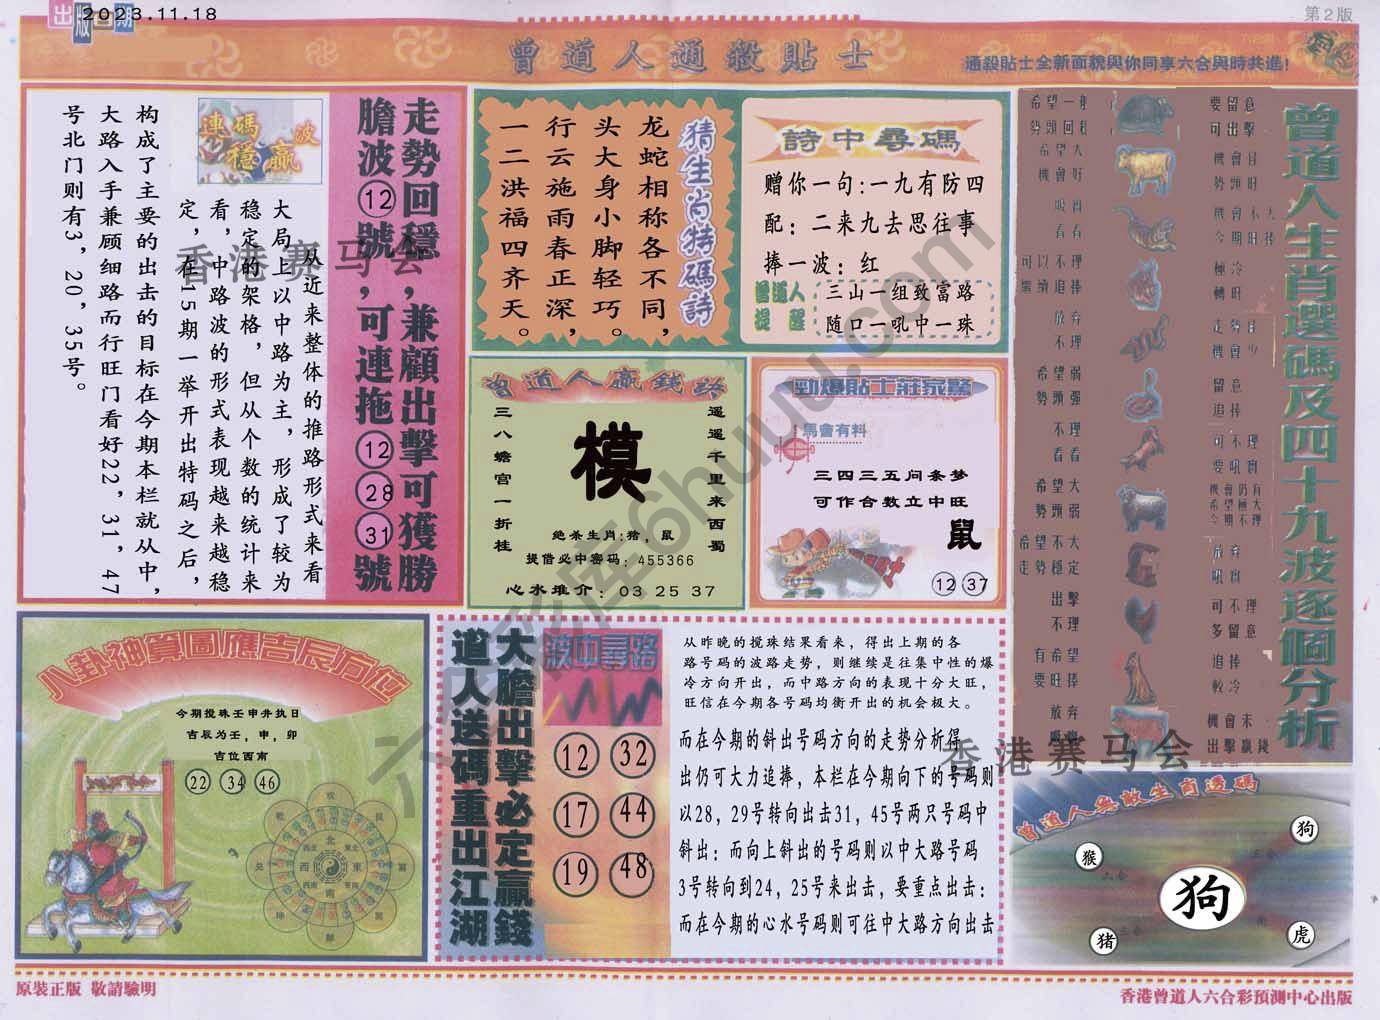 出版日期
2023.11.18
第2版
曾道人通殺貼士
通殺貼士全新面貌與你同享六合與時共進!
走勢回穩,兼顧出擊可獲勝
膽波⑫號,可連拖⑫㉘㉛號
連碼 波
穩贏
从近来整体的推路形式来看
大局上以中路为主,形成了较为
稳定的架格,但从个数的统计来
看,中路波的形式表现越来越稳
定,在15期一举开出特码之后,
构成了主要的出击的目标在今期本栏就从中,
大路入手兼顾细路而行旺门看好22,31,47
号北门则有3,20,35号。
猜生肖特碼詩
龙蛇相称各不同,
头大身小脚轻巧。
行云施雨春正深,
一二洪福四齐天。
詩中尋碼
赠你一句:一九有防四
配:二来九去思往事
捧一波:红
曾道人
提醒
三山一组致富路
随口一吼中一珠
曾道人贏錢詩
遥遥千里来西蜀
模
三八蟾宫一折桂
绝杀生肖:猪,鼠
提借必中密码:455366
心水推介:03 25 37
勁爆貼士莊家驚
馬會有料
三四三五问条梦
可作合数立中旺
鼠
12 37
曾道人生肖選碼及四十九波逐個分析
希望一般
勢頭回穩
要留意
可出擊
希望大
機會好
機會佳
勢頭好
看看
機會不大
今期旺捧
可以不理
繼續追捧
極冷
轉旺
放弃
不理
走勢佳
機會少
希望弱
勢頭强
留意
追捧
不理
看看
可不理
要吼實
希望大
勢頭弱
機會仍有
希望極大
今期不理
希望不大
走勢穩定
放弃
吼實
出擊
不理
可不理
多留意
有希望
要旺捧
追捧
較冷
放弃
機會未
出擊贏錢
八卦神算圖應吉辰方位
今期搅珠壬申井执日
吉辰为壬,申,卯
吉位西南
22 34 46
北
西 東
南
大膽出擊必定贏錢
道人送碼重出江湖
波中尋路
12 32
17 44
19 48
从昨晚的搅珠结果看来,得出上期的各
路号码的波路走势,则继续是往集中性的爆
冷方向开出,而中路方向的表现十分大旺,
旺信在今期各号码均衡开出的机会极大。
而在今期的斜出号码方向的走势分析得
出仍可大力追捧,本栏在今期向下的号码则
以28,29号转向出击31,45号两只号码中
斜出:而向上斜出的号码则以中大路号码
3号转向到24,25号来出击,要重点出击:
而在今期的心水号码则可往中大路方向出击
曾道人無敵生肖透碼
狗
猴
狗
猪
虎
香港赛马会
香港赛马会
六彩库6huuu.com
原裝正版 敬請驗明
香港曾道人六合彩預測中心出版